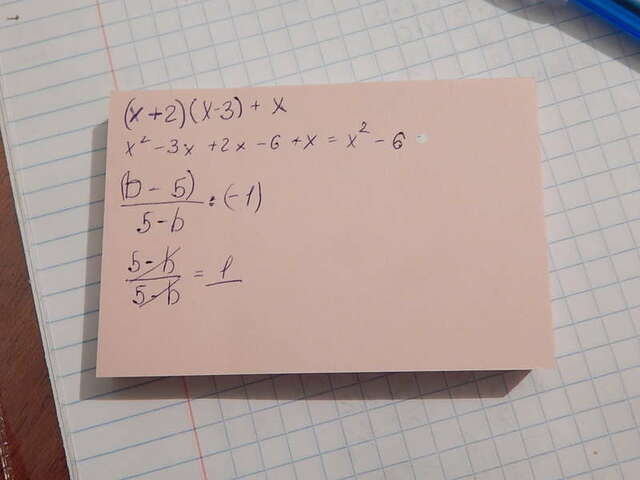 (x+2)(x-3)+x
x² -3x +2x -6 +x = x² - 6
(b - 5)/5 - b : (-1)
5 - b/5 - b = 1